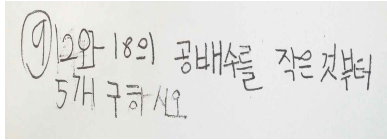 ⑨ 12와 18의 공배수를 작은 것부터
5개 구하시오